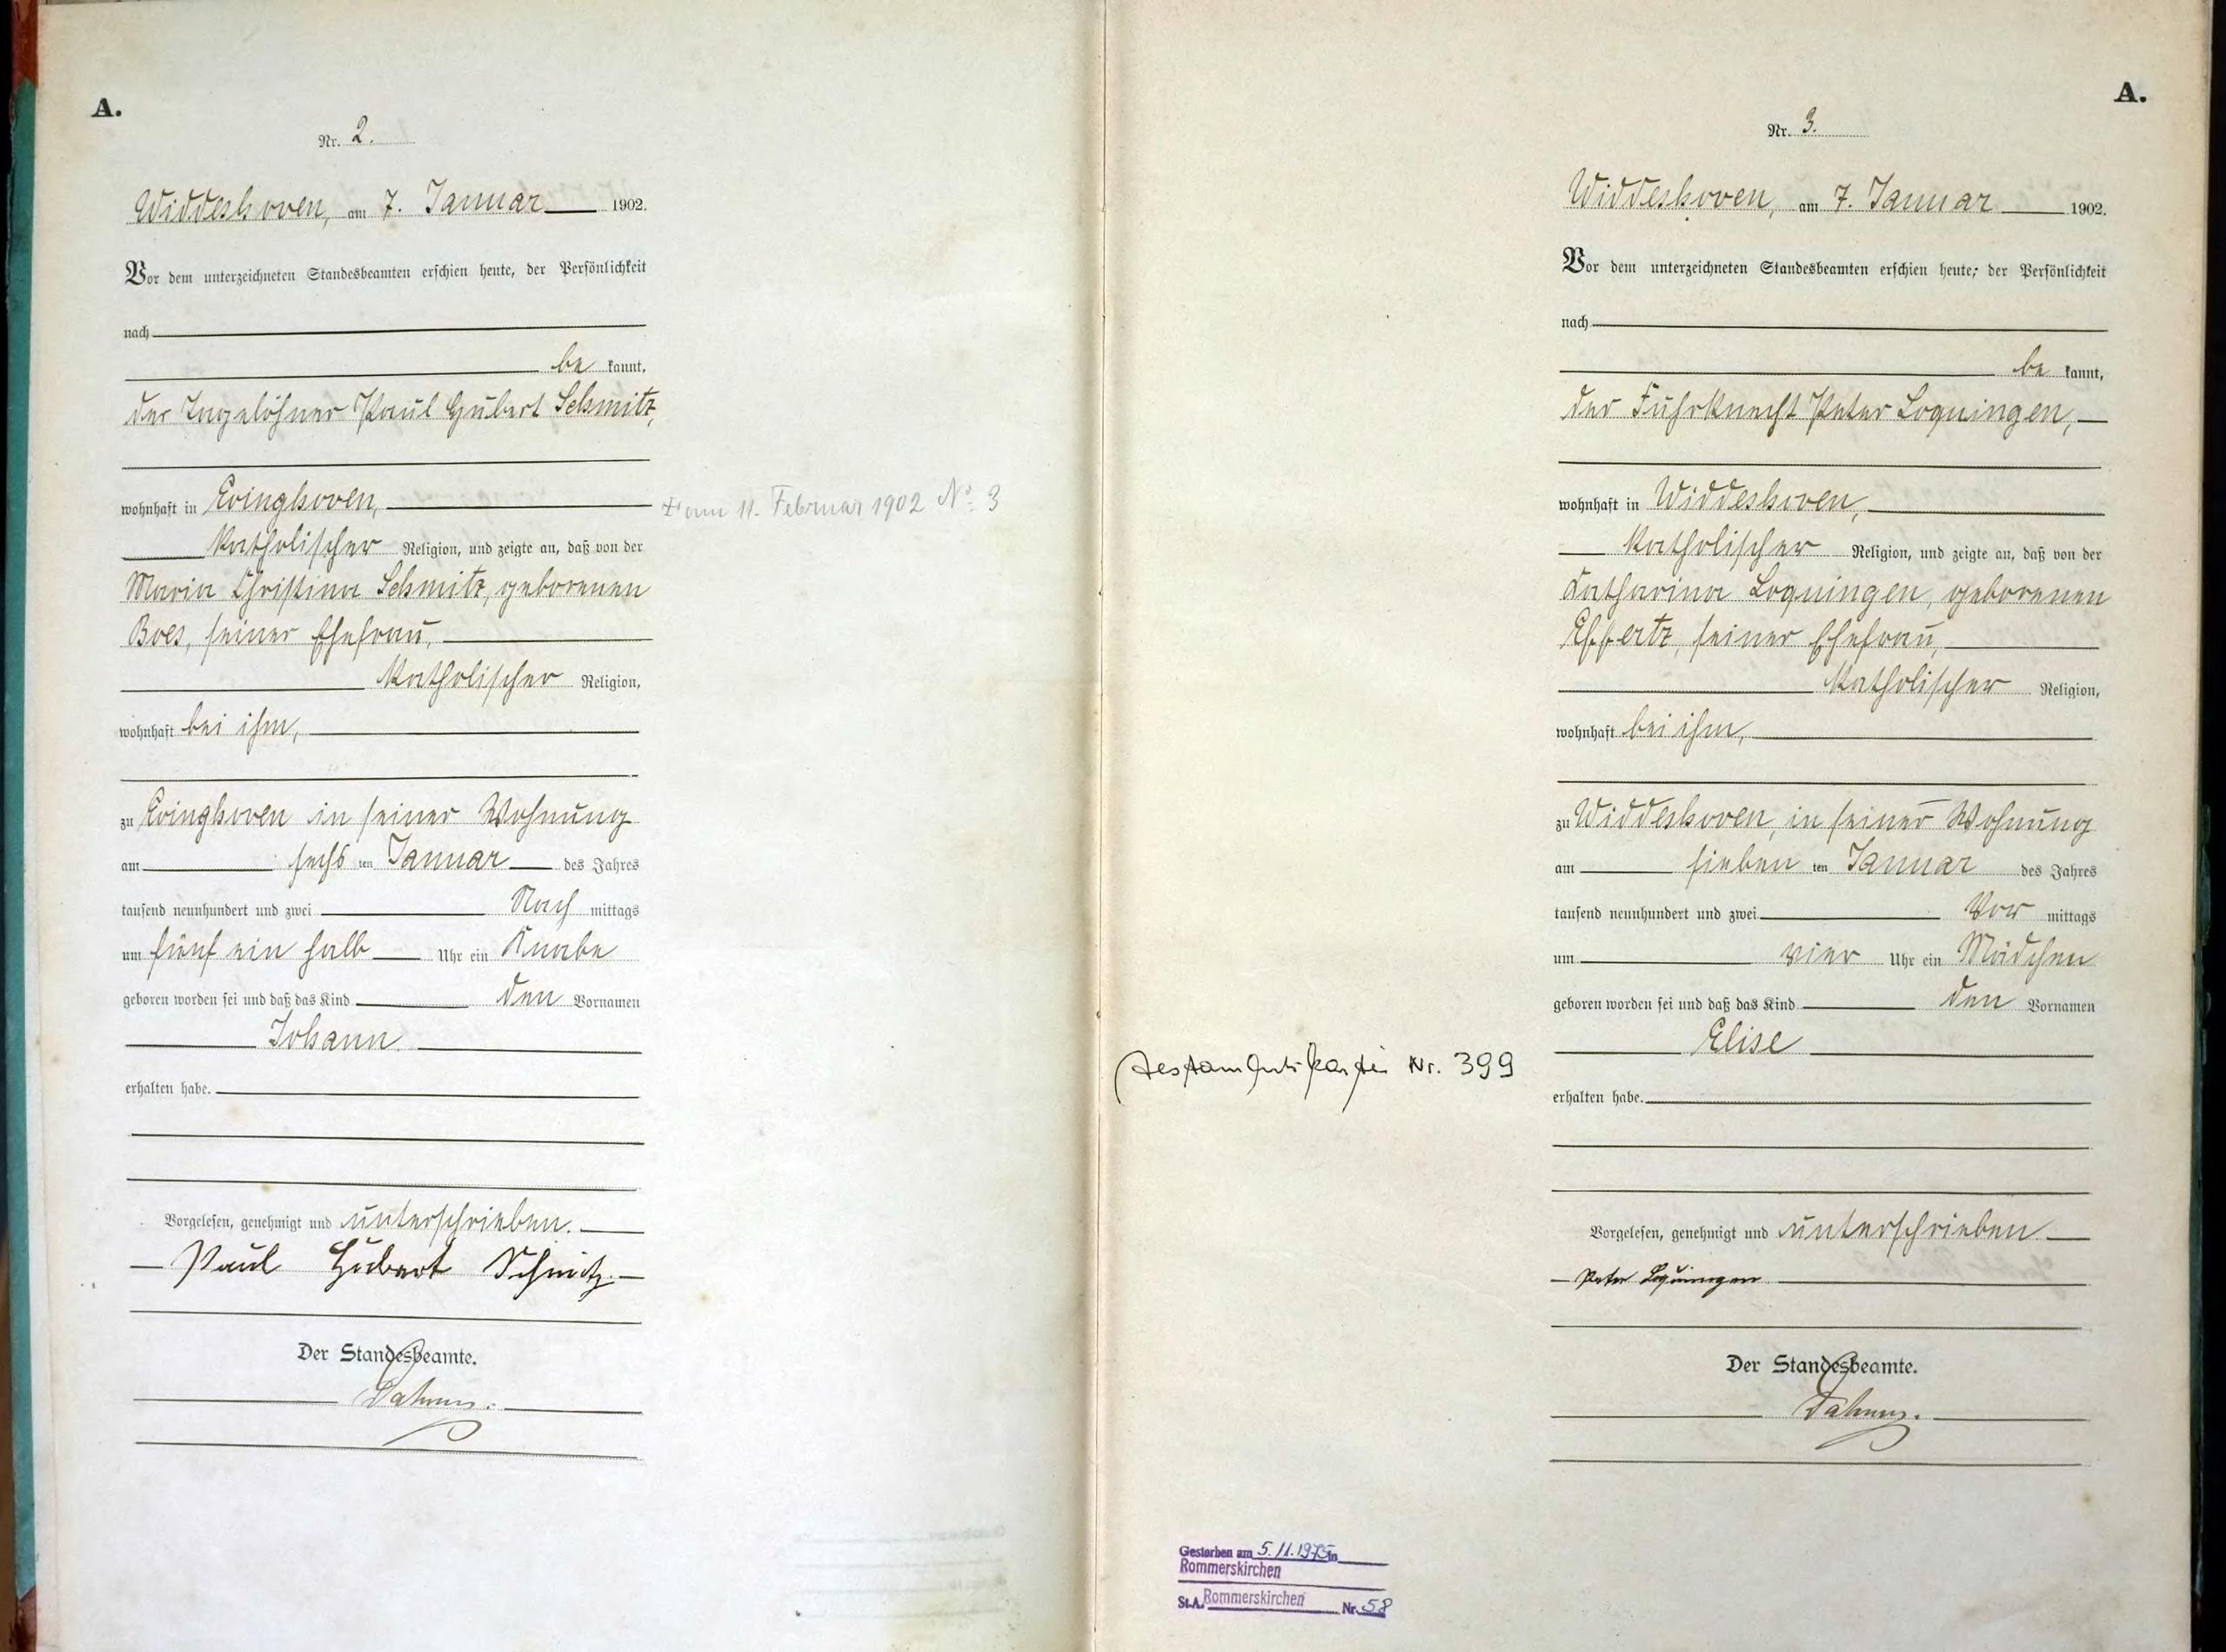 A.
Nr. 2.
Widdeshoven, am 7. Januar 1902.
Vor dem unterzeichneten Standesbeamten erschien heute, der Persönlichkeit
nach
be kannt,
der Tagelöhner Paul Hubert Schmitz,
wohnhaft in Evinghoven,
katholischer Religion, und zeigte an, daß von der
Maria Christina Schmitz, geborenen
Boes, seiner Ehefrau,
katholischer Religion,
wohnhaft bei ihm,
zu Evinghoven in seiner Wohnung
am sechs ten Januar des Jahres
tausend neunhundert und zwei Nach mittags
um fünf ein halb Uhr ein Knabe
geboren worden sei und daß das Kind den Vornamen
Johann
erhalten habe.
Vorgelesen, genehmigt und unterschrieben.
Paul Hubert Schmitz.
Der Standesbeamte.
† am 11. Februar 1902 No. 3
A.
Nr. 3.
Widdeshoven, am 7. Januar 1902.
Vor dem unterzeichneten Standesbeamten erschien heute, der Persönlichkeit
nach
be kannt,
der Fuhrknecht Peter Loquingen,
wohnhaft in Widdeshoven,
katholischer Religion, und zeigte an, daß von der
Katharina Loquingen, geborenen
Effertz, seiner Ehefrau,
katholischer Religion,
wohnhaft bei ihm,
zu Widdeshoven, in seiner Wohnung
am sieben ten Januar des Jahres
tausend neunhundert und zwei Vor mittags
um vier Uhr ein Mädchen
geboren worden sei und daß das Kind den Vornamen
Elise
erhalten habe.
Vorgelesen, genehmigt und unterschrieben
Peter Loquingen
Der Standesbeamte.
Testamentskartei Nr. 399
Gestorben am 5.11.1975 in
Rommerskirchen
St.A. Rommerskirchen Nr. 58